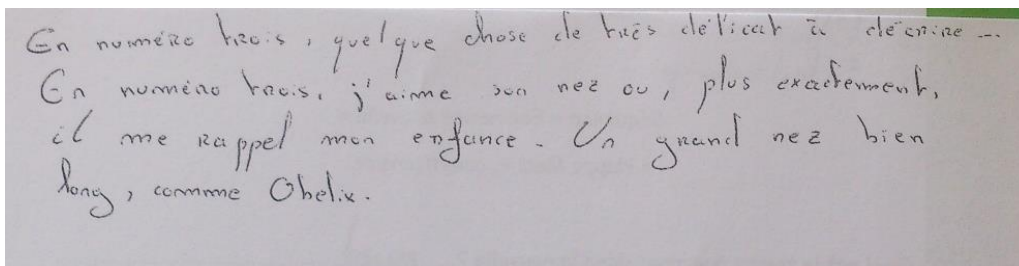 En numéro trois, quelque chose de très délicat à décrire...
En numéro trois, j'aime son nez ou, plus exactement,
il me rappel mon enfance. Un grand nez bien
long, comme Obelix.